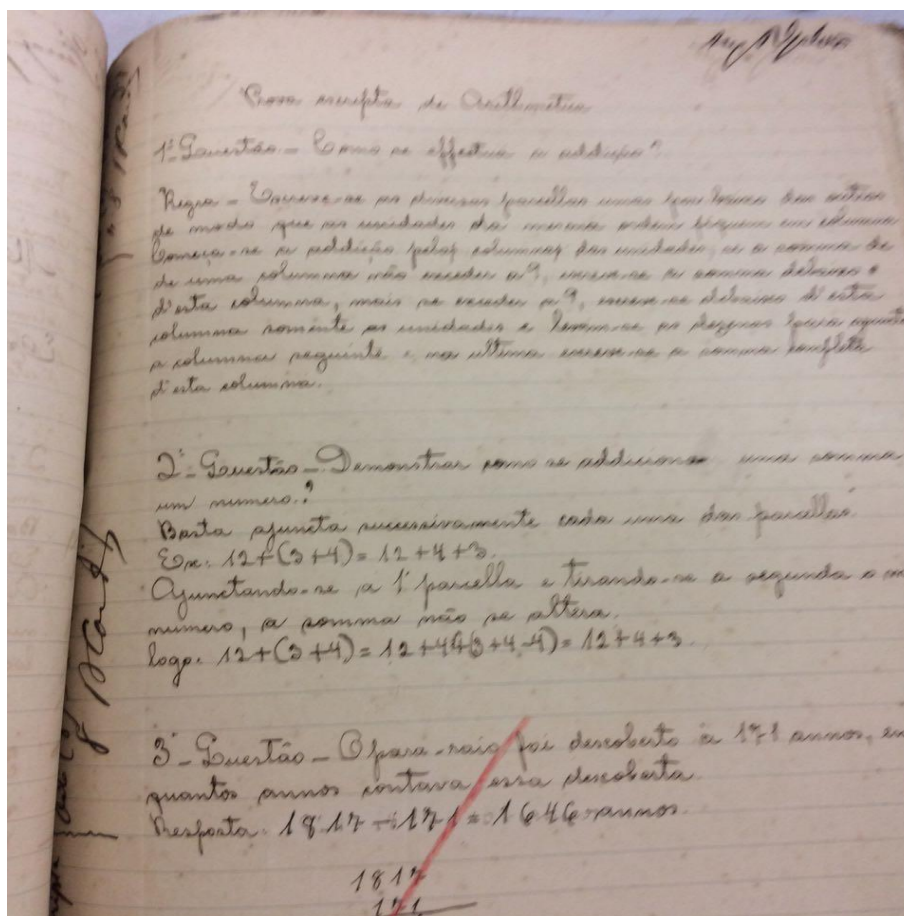 Prova escripta de Arithmetica
1ª Questão – Como se effectua a addição?
Regra – Escreve-se as diversas parcellas umas por baixo das outras
de modo que as unidades da mesma ordem fiquem em columna
Começa-se a addição pelas columnas das unidades, se a somma de
de uma columna não exceder a 9, escreve-se a somma debaixo
d'esta columna, mais se exceder a 9, escreve-se debaixo d'esta
columna somente as unidades e levam-se as dezenas para
a columna seguinte e na ultima escreve-se a somma completa
d'esta columna.
2ª – Questão – Demonstrar como se addiciona uma somma
um numero.?
Basta ajuncta successivamente cada uma das parcellas.
Ex: 12+(3+4)=12+4+3.
Ajunctando-se a 1ª parcella e tirando-se a segunda o
numero, a somma não se altera.
logo. 12+(3+4)=12+4+(3+4-4)=12+4+3.
3ª – Questão – O para-raio foi descoberto à 171 annos, em
quantos annos contava essa descoberta.
Resposta. 1817 – 171 = 1646 annos.
1817
171